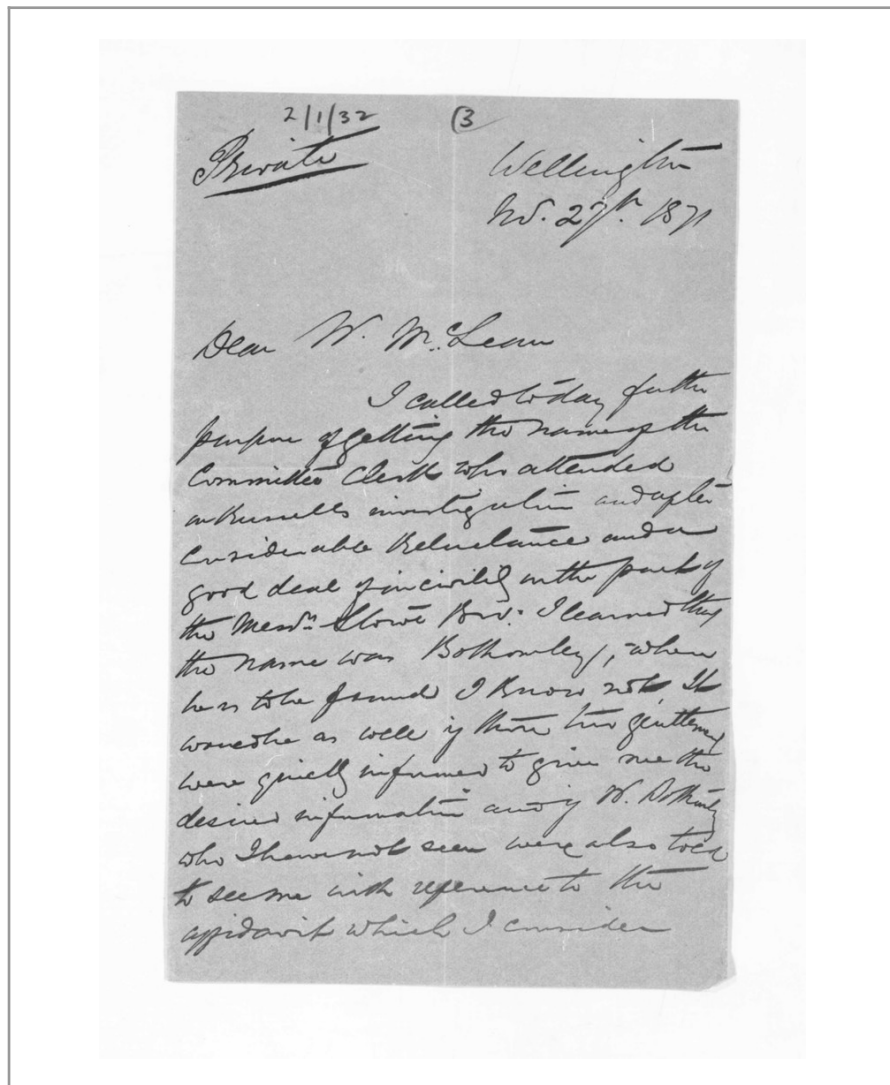 2/1/32 (3
Private
Wellington
Nov. 27th. 1871
Dear W. McLean
I called to day for the
purpose of getting the name of the
Committee Clerk who attended
on Russells investigation and after
considerable reluctance and a
good deal of incivility on the part of
the Messrs Stowe Bros. I learned that
the name was Bothamley, where
he is to be found I know not It
would be as well if those two gentlemen
were quietly informed to give me the
desired information and if W. Bothamley
who I have not seen were also told
to see me with reference to the
affidavit which I consider